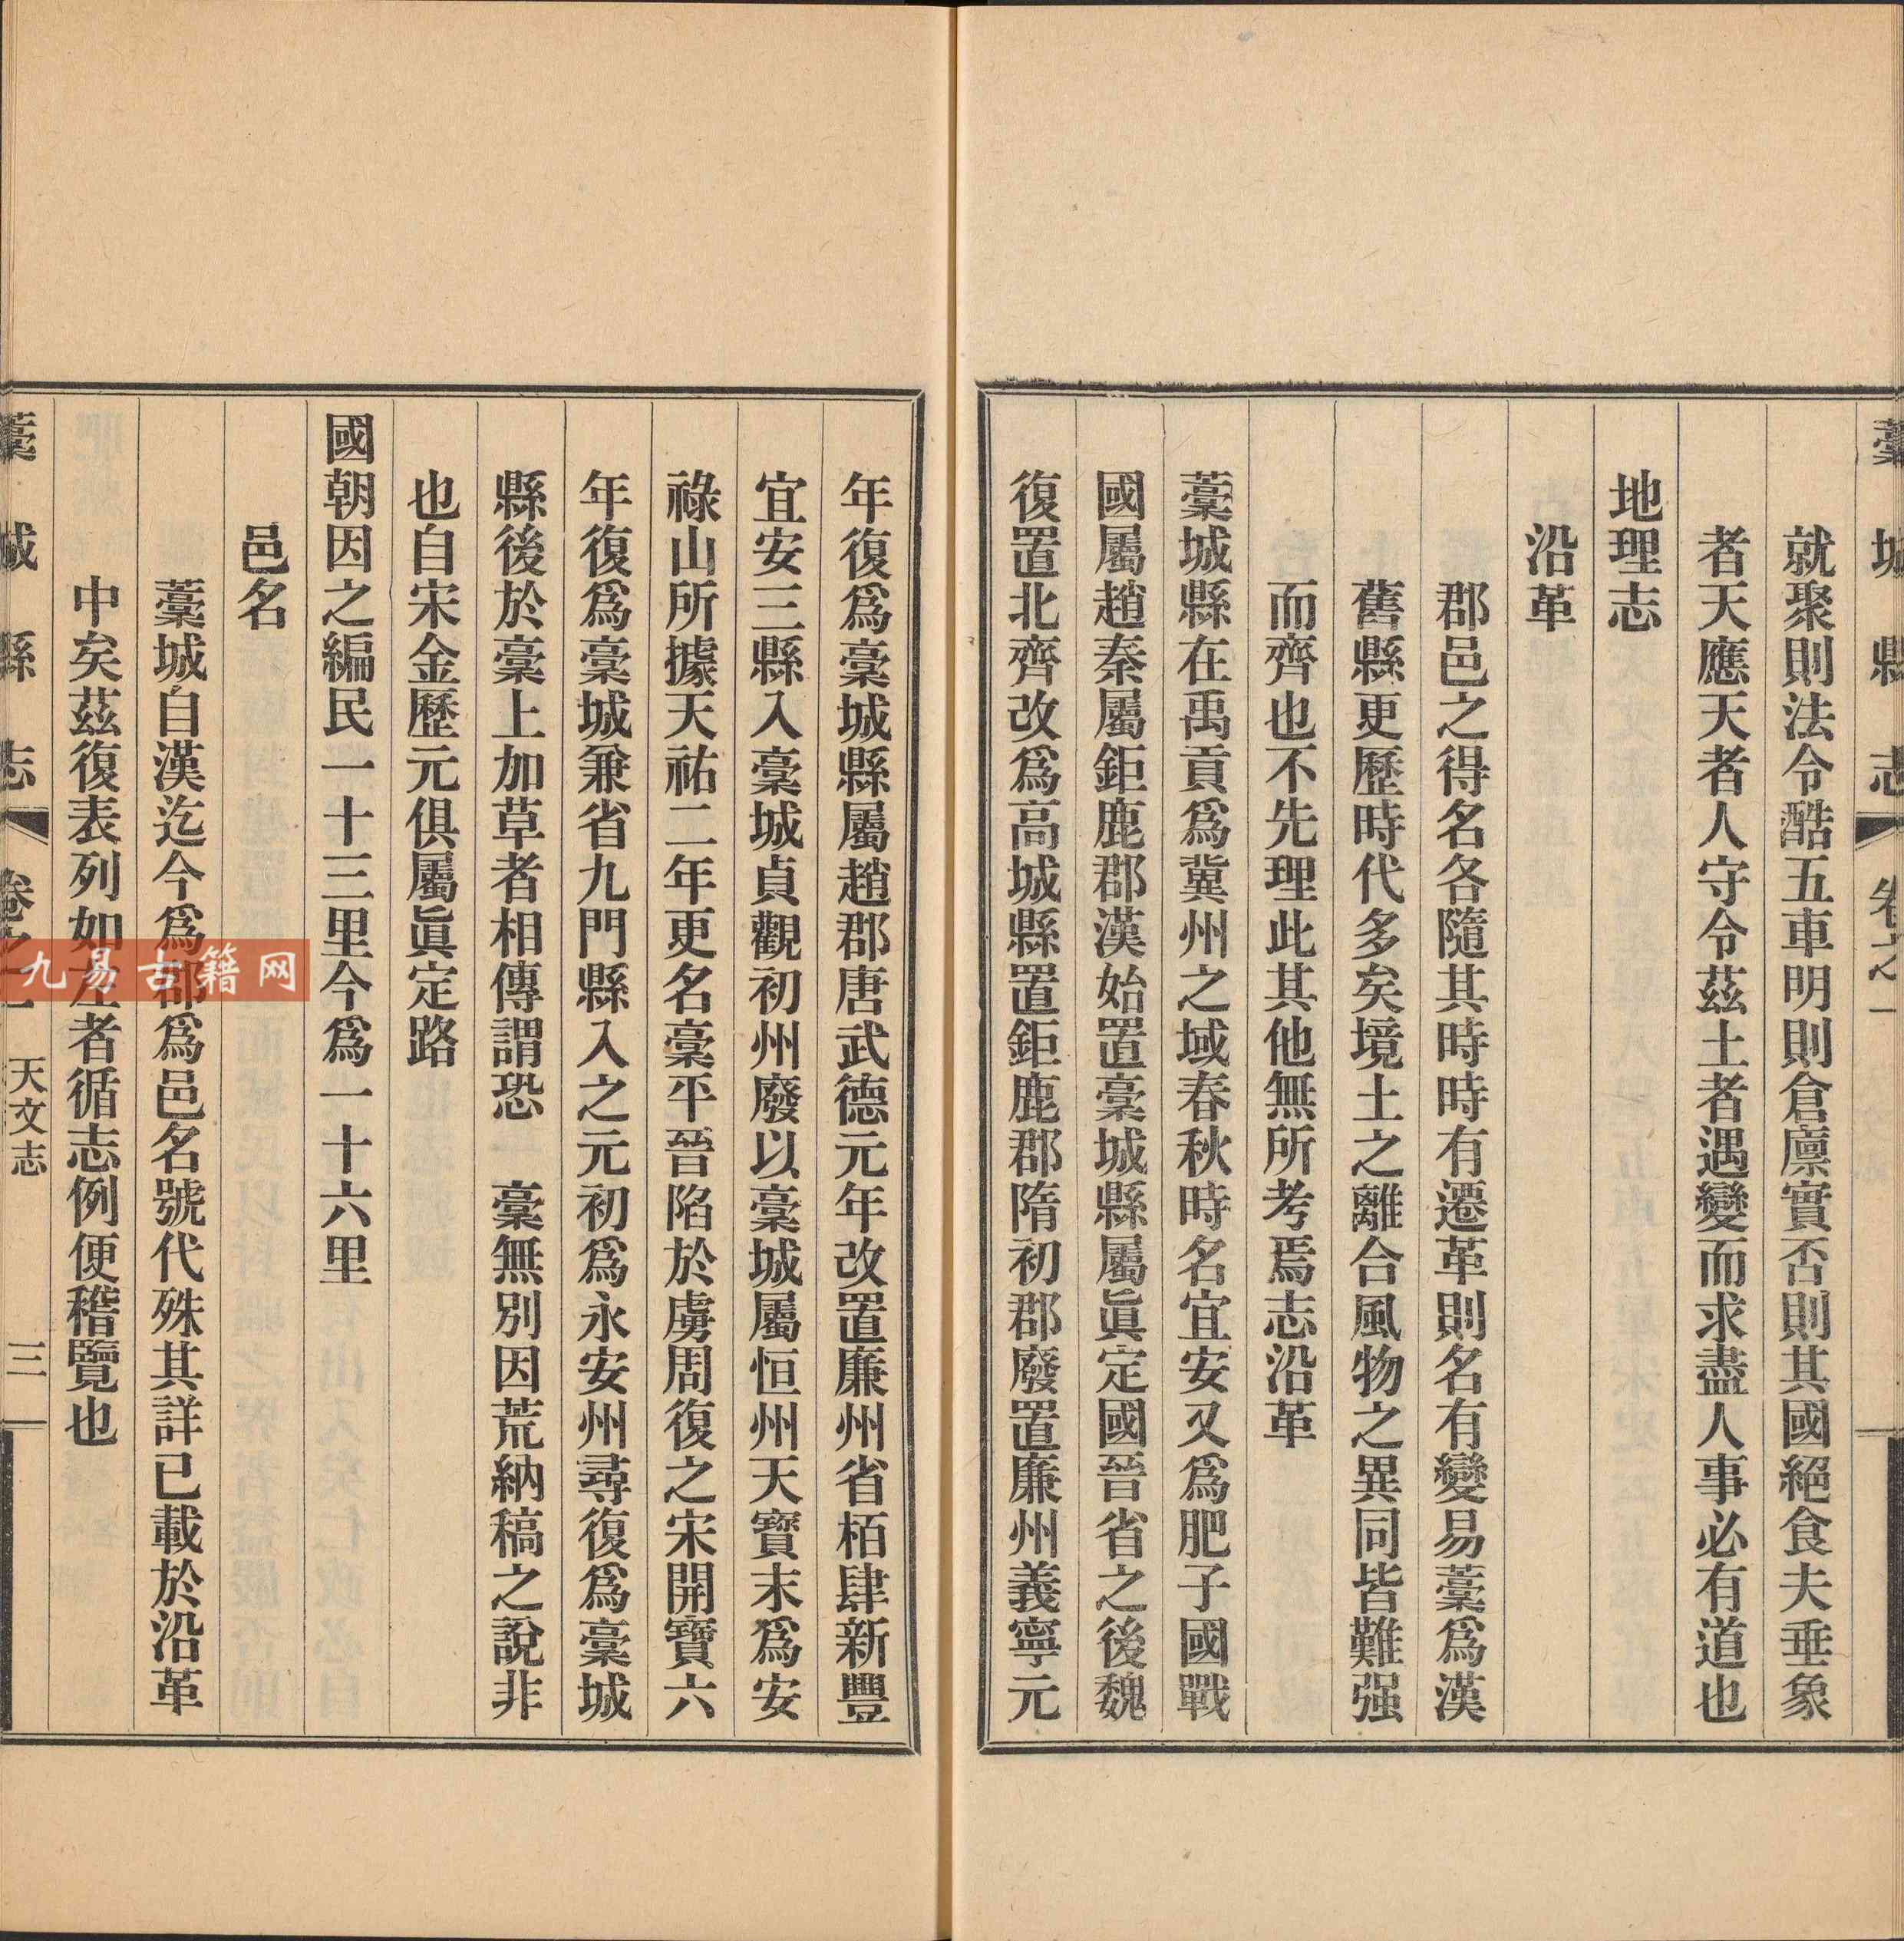 藁城縣志 卷之一
就聚則法令酷五車明則倉廪實否則其國絕食夫垂象
者天應天者人守令茲土者遇變而求盡人事必有道也
地理志
沿革
郡邑之得名各隨其時時有遷革則名有變易藁爲漢
舊縣更歷時代多矣境土之離合風物之異同皆難强
而齊也不先理此其他無所考焉志沿革
藁城縣在禹貢爲冀州之域春秋時名宜安又爲肥子國戰
國屬趙秦屬鉅鹿郡漢始置槀城縣屬眞定國晉省之後魏
復置北齊改爲高城縣置鉅鹿郡隋初郡廢置廉州義寧元
年復爲槀城縣屬趙郡唐武德元年改置廉州省栢肆新豐
宜安三縣入槀城貞觀初州廢以槀城屬恒州天寶末爲安
祿山所據天祐二年更名槀平晉陷於虜周復之宋開寶六
年復爲槀城兼省九門縣入之元初爲永安州尋復爲槀城
縣後於槀上加草者相傳謂恐 槀無別因荒納稿之說非
也自宋金歷元俱屬眞定路
國朝因之編民一十三里今爲一十六里
邑名
藁城自漢迄今爲郡爲邑名號代殊其詳已載於沿革
中矣茲復表列如左者循志例便稽覽也
藁城縣志 卷之一 天文志 三
九易古籍网